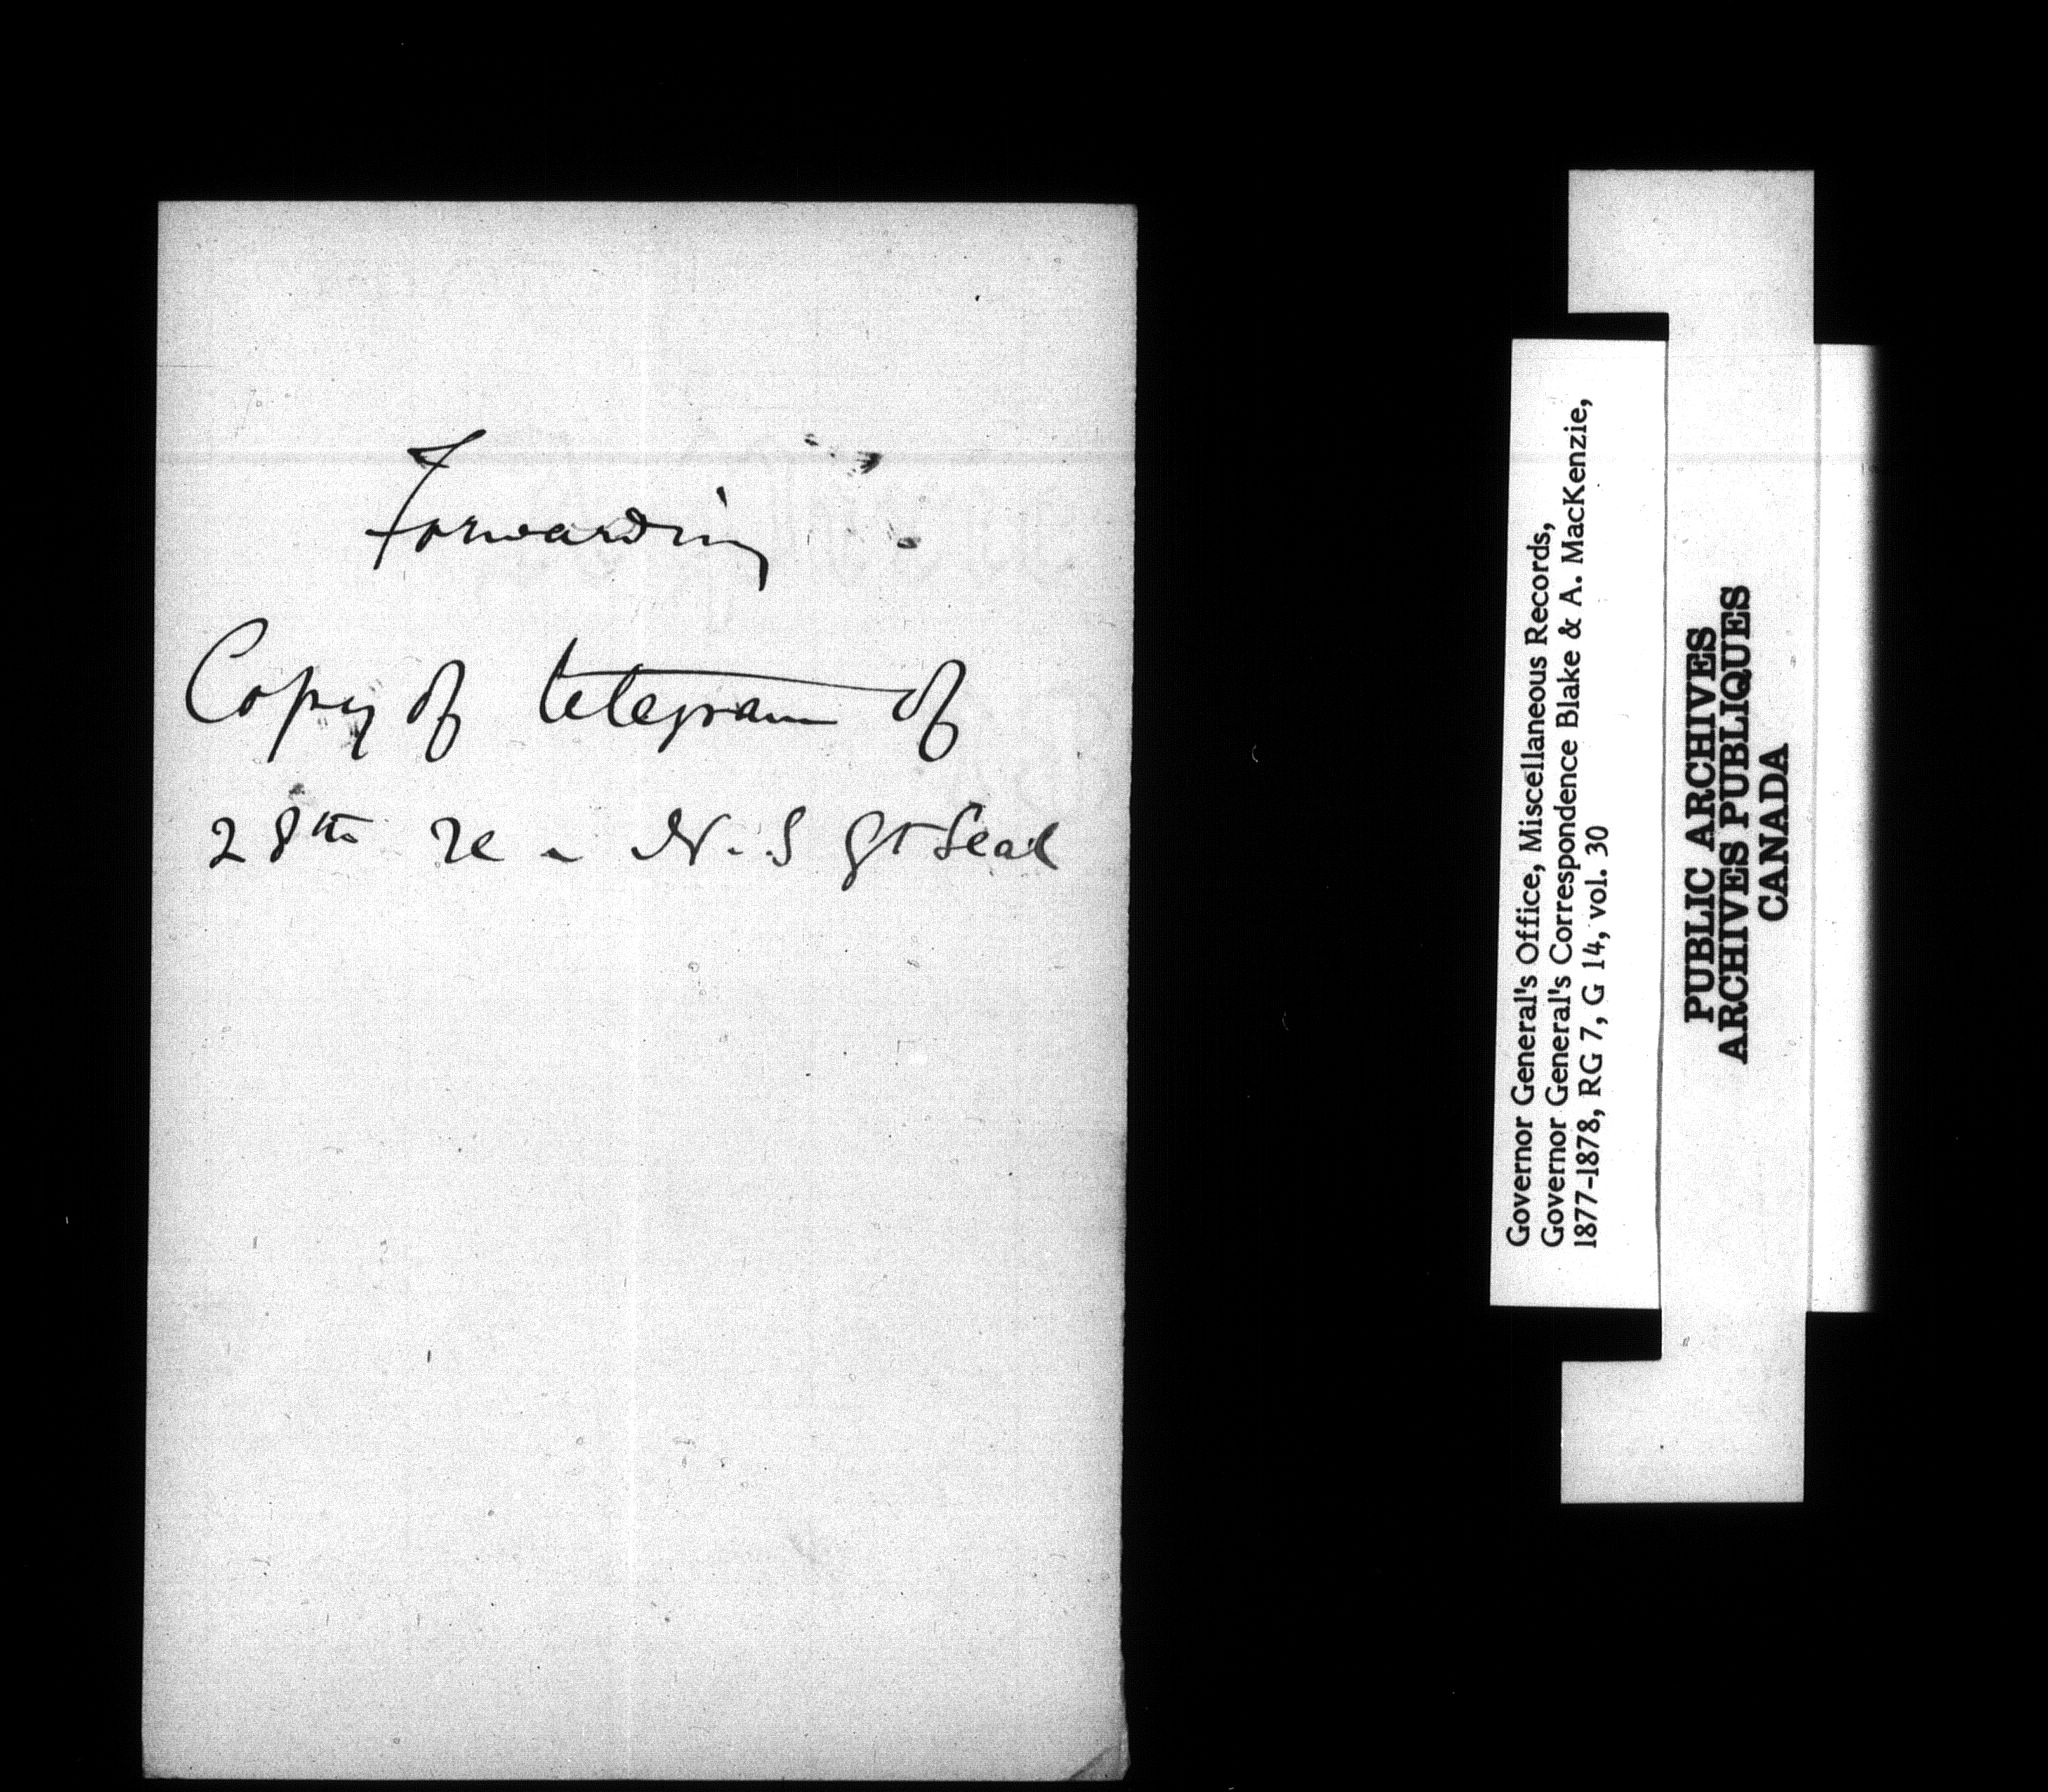 Forwarding
Copy of telegram of
28th re - N.S gt Seal
Governor General's Office, Miscellaneous Records,
Governor General's Correspondence Blake & A. MacKenzie,
1877-1878, RG 7, G 14, vol. 30
PUBLIC ARCHIVES
ARCHIVES PUBLIQUES
CANADA